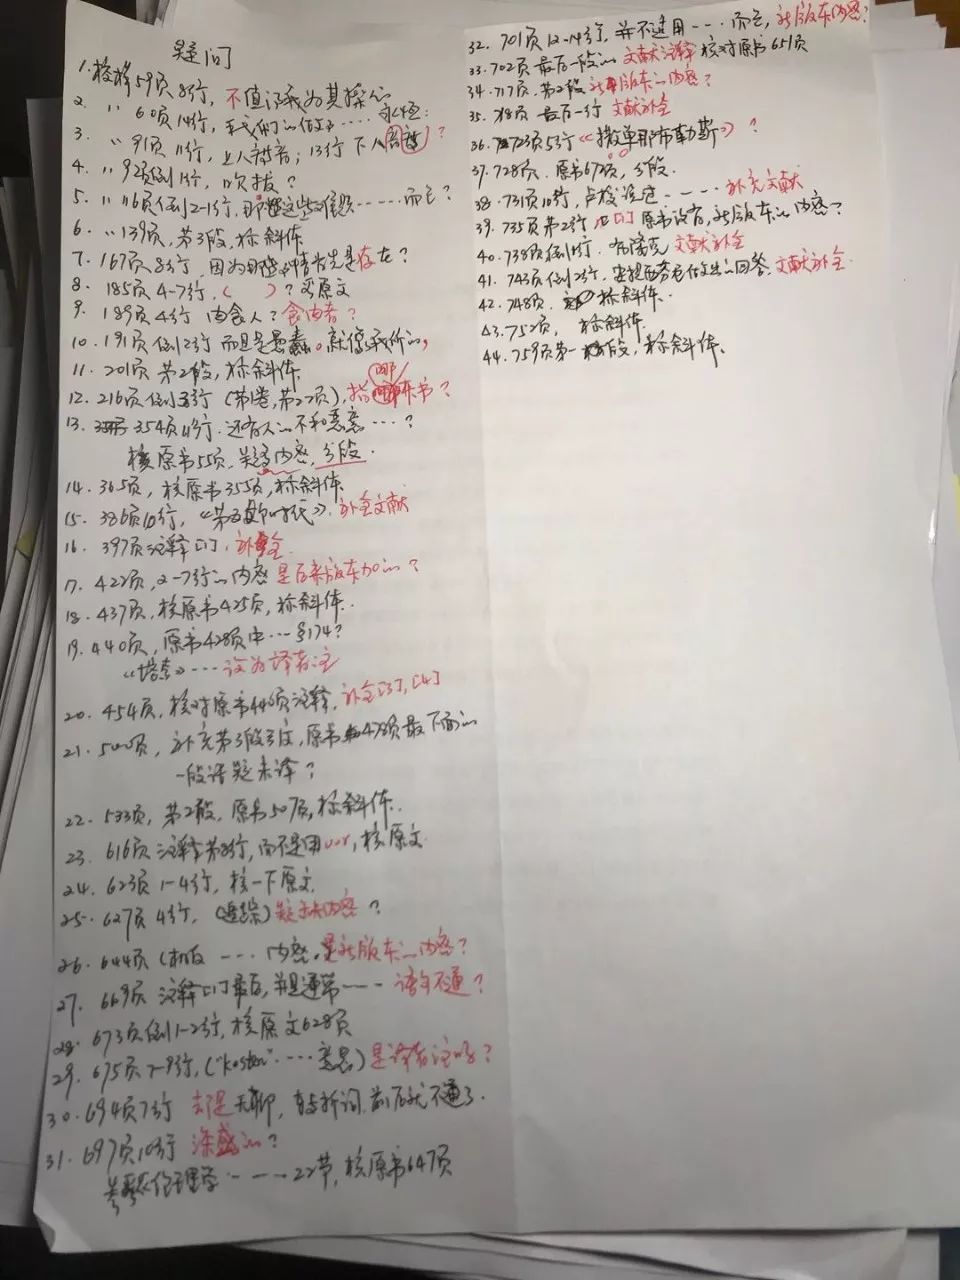 疑问
1. 校样59页8行，不值得我为其操心
2. 〃 60页14行，至我们的……
3. 〃 91页11行，上人；13行下人？
4. 〃 92页倒1行，吹拔？
5. 〃 116页倒2-1行，那……而已？
6. 〃 139页，第3段，标斜体
7. 167页8行，因为事情首先是存在？
8. 185页4-7行，（ ）？买原文
9. 189页4行 肉食人？食肉者？
10. 191页倒2行 而且是愚蠢。就像我所的，
11. 201页 第2段，标斜体
12. 216页倒3行（第1卷，第27页），指哪本书？
13. 354页11行.还有人的不和恶意…？
核原书55页，内容，分段.
14. 365页，核原书355页，标斜体.
15. 386页10行，《第时代》. 补全文献
16. 397页注释[1]，补全.
17. 422页，2-7行的内容是后来版本加的？
18. 437页，核原书425页，标斜体.
19. 440页，原书428页中…§174?
《……设为译者注
20. 454页，核对原书440页注释，补全[3]，[4]
21. 500页，补充第3段，原书478页最下面的
一段话疑未译？
22. 533页，第2段，原书507页，标斜体.
23. 616页 注释第8行，而不是用vor，核原文
24. 623页 1-4行，核一下原文
25. 627页 4行，（追踪）疑缺内容？
26. 644页（…… 内容.是新版本的内容？
27. 669页 注释[1]最后，……语句不通？
28. 673页倒1-2行，核原文628页
29. 675页7-9行，（“kosten”……意思）是译者注吗？
30. 694页7行 却是无聊，转折词，前后就不通了.
31. 697页10行 深盛的？
参伦理学……22节，核原书647页
32. 701页12-14行，并不适用……而已，新版本内容？
33. 702页 最后一段的文献注释 核对原书651页
34. 717页，第2段新版本的内容？
35. 最后一行 文献补全
36. 723页5行《撒单那布勒斯》？
37. 728页. 原书672页，分段.
38. 731页10行，卢梭说过……补充文献
39. 735页第2行[1] 原书没有，新版本的内容？
40. 738页倒1行. 文献补全
41. 743页倒2行，做出的回答，文献补全.
42. 748页. 标斜体.
43. 752页， 标斜体.
44. 759页第一段，标斜体.